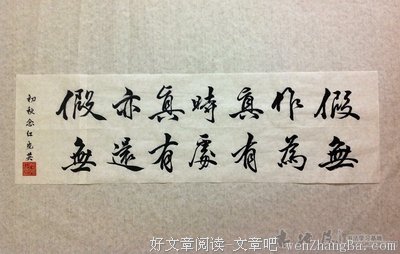 假作真時真亦假
無為有處有還無
初秋
好文章阅读-文章吧 wenzhangba.com